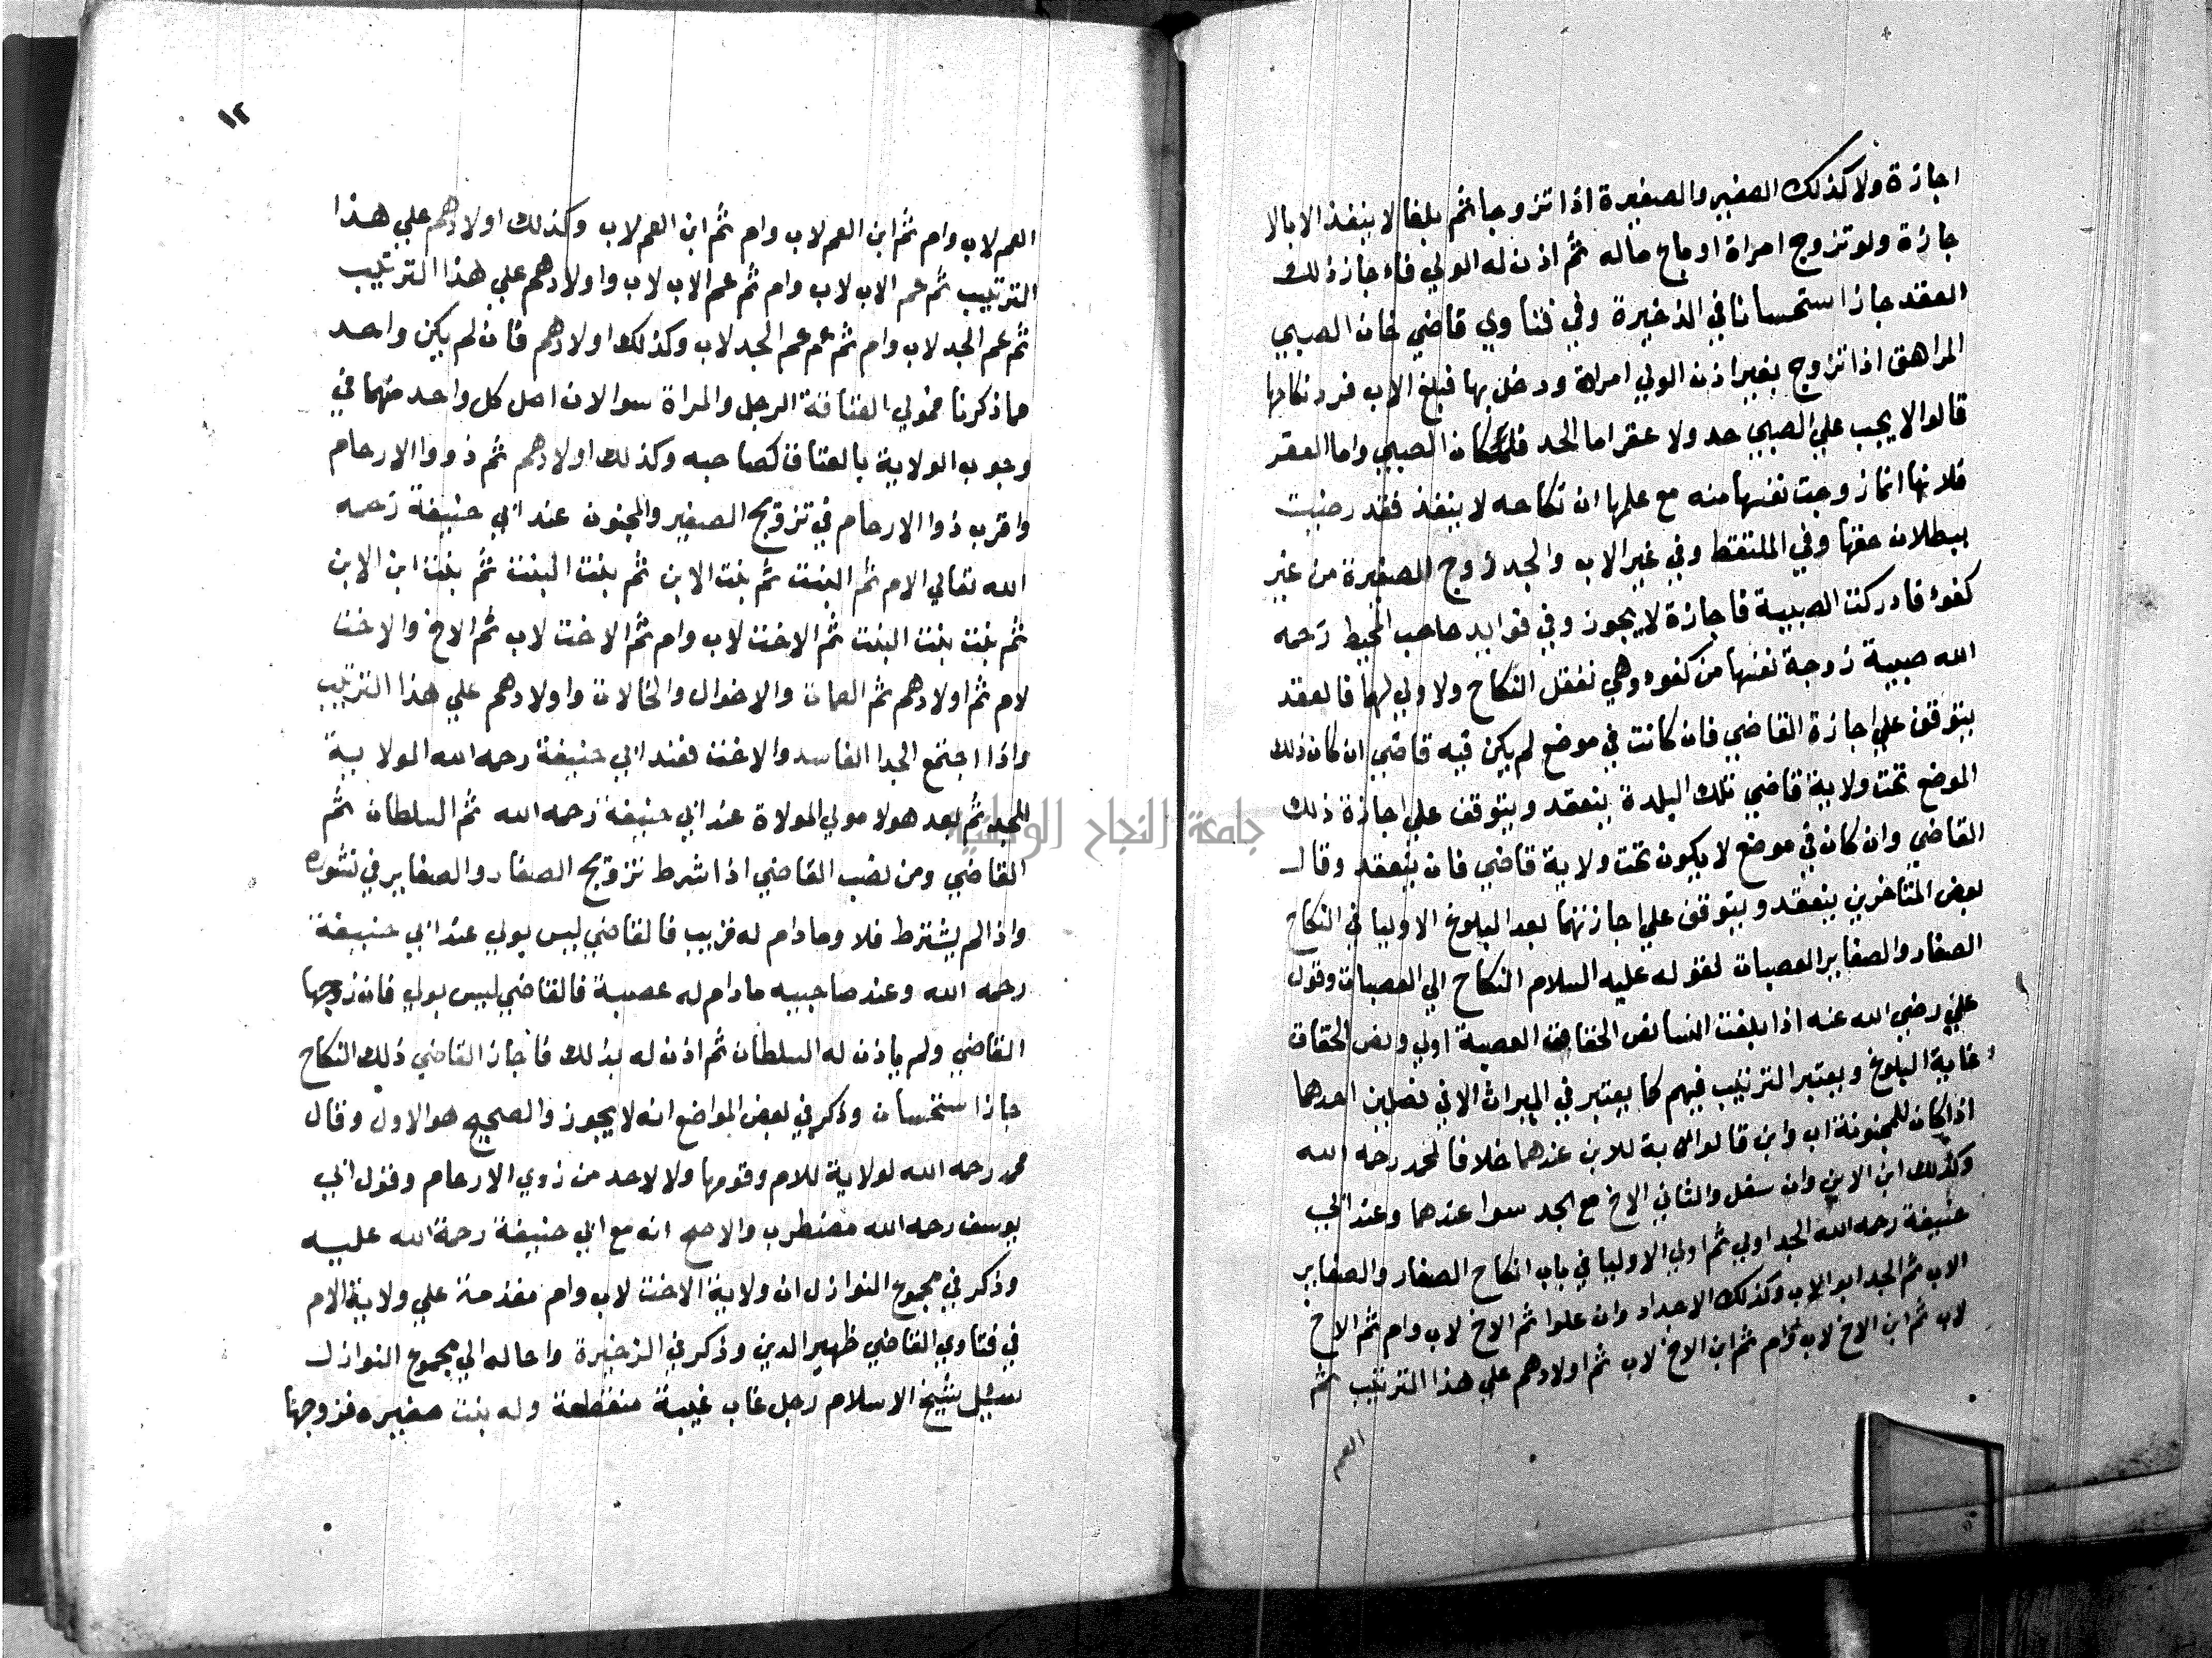 اجازة ولا كذلك الصغير والصغيرة اذا تزوجا ثم بلغا لا ينفذ الا بالا
جازة ولو تزوج امراة او باع ماله ثم اذن له الولي فاءجاز ذلك
العقد جاز استحسانا في الذخيرة وفي فتاوي قاضي خان الصبي
المراهق اذا تزوج بغير اذن الولي امراة ودخل بها فبلغ الاب فرد نكاحها
قالوا لا يجب علي الصبي حد ولا عقر اما الحد فلمكان الصبي واما العقر
فلانها انما زوجت نفسها منه مع علمها ان نكاحه لا ينفذ فقد رضيت
ببطلان حقها وفي الملتقط وفي غير الاب والجد زوج الصغيرة من غير
كفوء فادركت الصبية فاجازة لا يجوز وفي فوايد صاحب المحيط رحمه
الله صبية زوجة نفسها من كفوء وهي تعقل النكاح ولا ولي لها فالعقد
يتوقف علي اجازة القاضي فان كانت في موضع لم يكن فيه قاضي ان كان ذلك
الموضع تحت ولاية قاضي تلك البلدة ينعقد ويتوقف علي اجازة ذلك
القاضي وان كان في موضع لا يكون تحت ولاية قاضي فان ينعقد وقال
بعض المتاخرين ينعقد ويتوقف علي اجازتهما بعد البلوغ الاوليا في النكاح
الصغار والصغاير العصبات لقوله عليه السلام النكاح الي العصبات وقول
علي رضي الله عنه اذا بلغت النسا نص الحقاق العصبة اولي ونص الحقاق
غاية البلوغ ويعتبر الترتيب فيهم كما يعتبر في الميراث الا في فصلين احدهما
اذا كان للمجنونة اب وابن قالولاية للابن عندهما خلافا لمحمد رحمه الله
وكذلك ابن الابن وان سفل والثاني الاخ مع الجد سوا عندهما وعند ابي
حنيفة رحمه الله الجد اولي ثم اولي الاوليا في باب انكاح الصغار والصغاير
الاب ثم الجد ابو الاب وكذلك الاجداد وان علوا ثم الاخ لاب وام ثم الاخ
لاب ثم ابن الاخ لاب وام ثم ابن الاخ لاب ثم اولادهم علي هذا الترتيب ثم
العم
١٢
العم لاب وام ثم ابن العم لاب وام ثم ابن العم لاب وكذلك اولادهم علي هذا
الترتيب ثم عم الاب لاب وام ثم عم الاب لاب واولادهم علي هذا الترتيب
ثم عم الجد لاب وام ثم عم عم الجد لاب وكذلك اولادهم فان لم يكن واحد
مما ذكرنا فمولي العتاقة الرجل والمراة سوا لان اصل كل واحد منهما في
وجوب الولاية بالعتاق كصاحبه وكذلك اولادهم ثم ذووا الارحام
واقرب ذوا الارحام في تزويج الصغير والمجنون عند ابي حنيفة رحمه
الله تعالي الام ثم البنت ثم بنت الابن ثم بنت البنت ثم بنت ابن الابن
ثم بنت بنت البنت ثم الاخت لاب وام ثم الاخت لاب ثم الاخ والاخت
لام ثم اولادهم ثم العمات والاخوال والخالات واولادهم علي هذا الترتيب
واذا اجتمع الجد الفاسد والاخت فعند ابي حنيفة رحمه الله الولاية
للجد ثم بعد هولا مولي المولاة عند ابي حنيفة رحمه الله ثم السلطان ثم
القاضي ومن نصب القاضي اذا شرط تزويج الصغار والصغاير في نشوره
واذا لم يشترط فلا وما دام له قريب فالقاضي ليس بولي عند ابي حنيفة
رحمه الله وعند صاحبيه ما دام له عصبة فالقاضي ليس بولي فان زوجها
القاضي ولم ياذن له السلطان ثم اذن له بذلك فاجاز القاضي ذلك النكاح
جاز استحسان وذكر في بعض المواضع انه لا يجوز والصحيح هو الاول وقال
محمد رحمه الله لولاية للام وقومها ولا لاحد من ذوي الارحام وقول ابي
يوسف رحمه الله مضطرب والاصح انه مع ابي حنيفة رحمة الله عليه
وذكر في مجموع النوازل ان ولاية الاخت لاب وام مقدمة علي ولاية الام
في فتاوي القاضي ظهير الدين وذكر في الذخيرة واحاله الي مجموع النوازل
سئيل شيخ الاسلام رجل غاب غيبة منقطعة وله بنت صغيره فزوجها
جامعة النجاح الوطنية